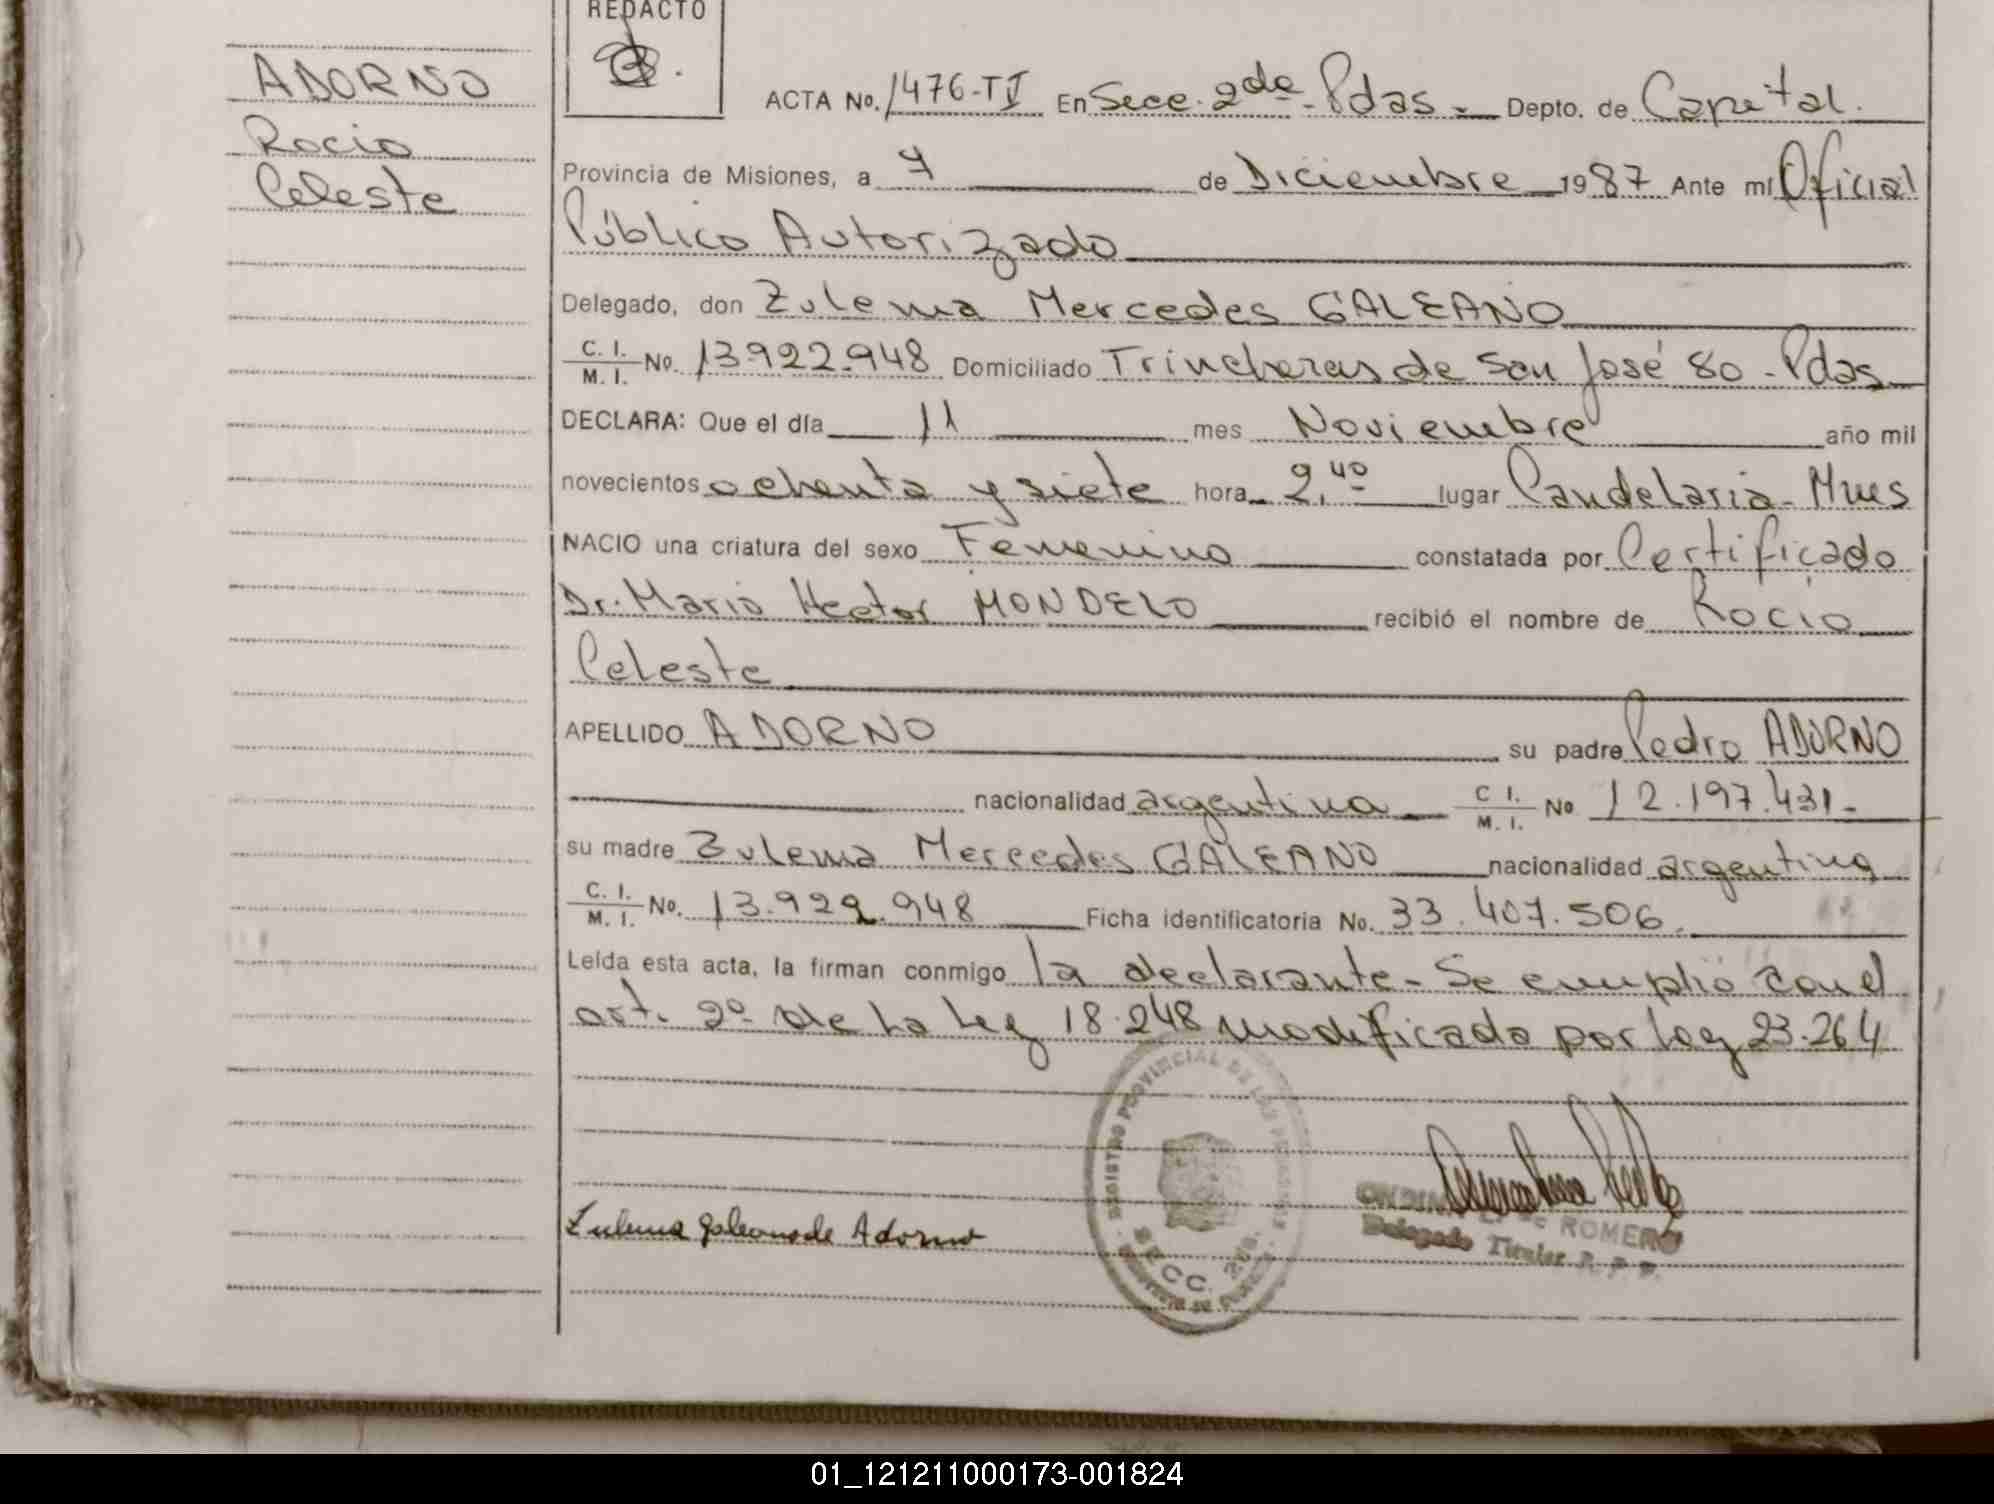 REDACTO
ADORNO
Rocio
Celeste
ACTA No. 1476-TI En Secc. 2da Pdas - Depto. de Capital.
Provincia de Misiones, a 7 de Diciembre 1987 Ante mí Oficial
Público Autorizado
Delegado, don Zulema Mercedes GALEANO
C. I. / M. I. No. 13.922.948 Domiciliado Trincheras de San José 80 - Pdas
DECLARA: Que el día 11 mes Noviembre año mil
novecientos ochenta y siete hora 2,40 lugar Candelaria Mnes
NACIO una criatura del sexo Femenino constatada por Certificado
Dr. Mario Hector MONDELO recibió el nombre de Rocio
Celeste
APELLIDO ADORNO su padre Pedro ADORNO
nacionalidad argentina C I. / M. I. No 12.197.431-
su madre Zulema Mercedes GALEANO nacionalidad argentina
C. I. / M. I. No. 13.922.948 Ficha identificatoria No. 33.407.506.
Leída esta acta, la firman conmigo la declarante - Se cumplió con el
art. 2º de la Ley 18.248 modificado por ley 23.264
REGISTRO PROVINCIAL DE LAS PERSONAS
SECC. 2da.
Zulema Galeano de Adorno
ROMERO
Delegado Titular R. P. P.
01_121211000173-001824